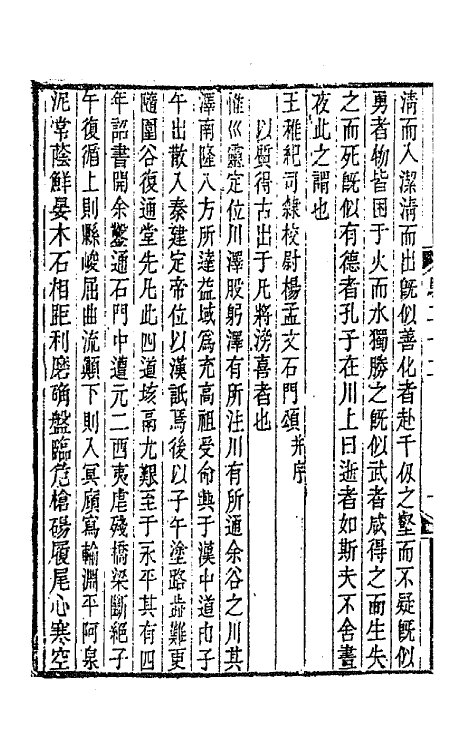 清而入潔清而出旣似善化者赴千仭之壑而不疑旣似
勇者物皆困于火而水獨勝之旣似武者咸得之而生失
之而死旣似有德者孔子在川上曰逝者如斯夫不舍晝
夜此之謂也
王稚紀司隸校尉楊孟文石門頌并序
以質得古出于凡將滂喜者也
惟巛靈定位川澤股躬澤有所注川有所通余谷之川其
澤南隆八方所達益域爲充高祖受命興于漢中道由子
午出散入秦建定帝位以漢詆焉後以子午塗路歭難更
隨圍谷復通堂先凡此四道垓鬲尤艱至于永平其有四
年詔書開余鑿通石門中遭元二西夷虐殘橋梁斷絕子
午復循上則縣峻屈曲流顚下則入冥廎寫輸淵平阿泉
泥常蔭鮮晏木石相距利磨确盤臨危槍碭履尾心寒空